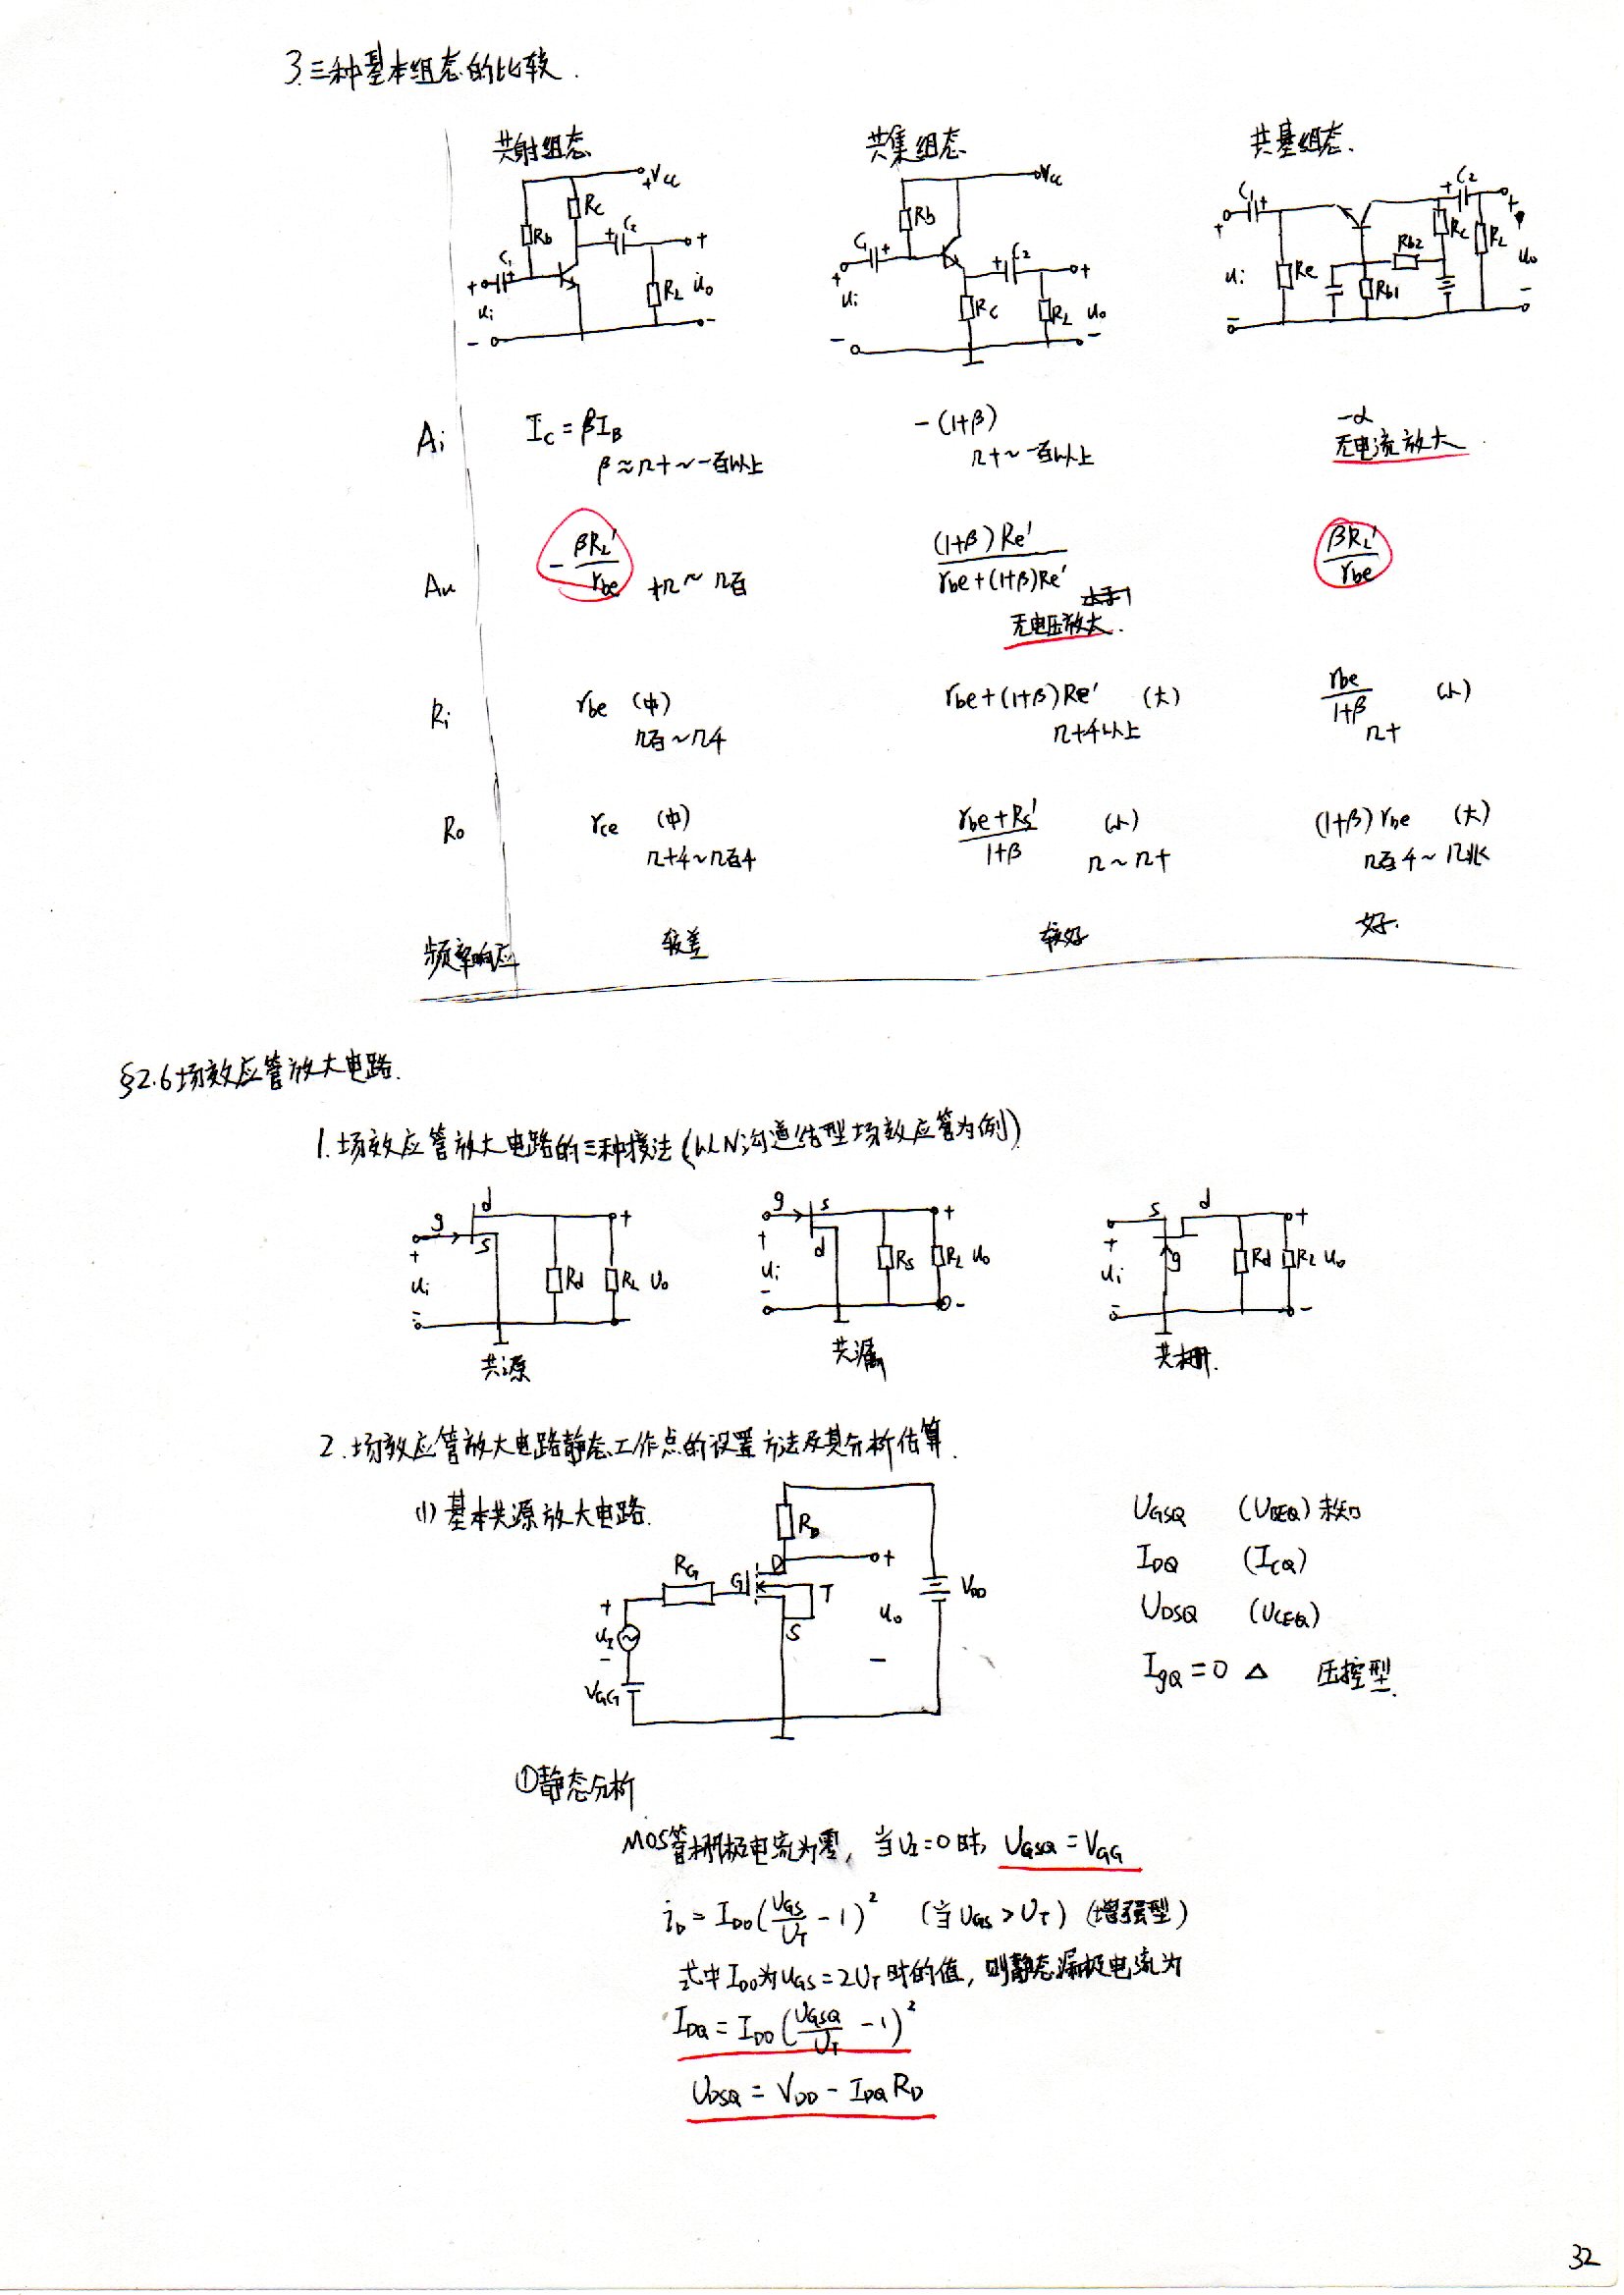 3.三种基本组态的比较.
共射组态 共集组态 共基组态.
+Vcc Rc Rb C1 + C2 + RL ui uo + -
Vcc Rb C1 + C2 + Rc RL ui uo + -
C1 + C2 + Re Rb2 Rb1 Rc RL ui uo + -
Ai Ic = βIB -(1+β) -α
β≈几十~一百以上 几十~一百以上 无电流放大
Au -βRL'/rbe 十几~几百 (1+β)Re'/(rbe+(1+β)Re') βRL'/rbe
无电压放大.
Ri rbe (中) rbe+(1+β)Re' (大) rbe/(1+β) (小)
几百~几千 几十千以上 几十
Ro rce (中) (rbe+Rs')/(1+β) (小) (1+β)rbe (大)
几十千~几百千 几~几十 几百千~几兆
频率响应 较差 较好 好.
§2.6 场效应管放大电路.
1.场效应管放大电路的三种接法(以N沟道结型场效应管为例)
g d s + ui - Rd RL Uo
g s d + ui - Rs RL uo + -
s d g + ui - Rd RL uo + -
共源 共漏 共栅.
2.场效应管放大电路静态工作点的设置方法及其分析估算.
(1)基本共源放大电路.
RD RG G D S T + uI - VGG + uo - VDD
UGSQ (UBEQ)未知
IDQ (ICQ)
UDSQ (UCEQ)
IgQ = 0 △ 压控型.
①静态分析
MOS管栅极电流为零, 当UI=0时, UGSQ = VGG
iD = IDO(UGS/UT - 1)² (当UGS > UT) (增强型)
式中IDO为UGS=2UT时的值, 则静态漏极电流为
IDQ = IDO(UGSQ/UT - 1)²
UDSQ = VDD - IDQ RD
32